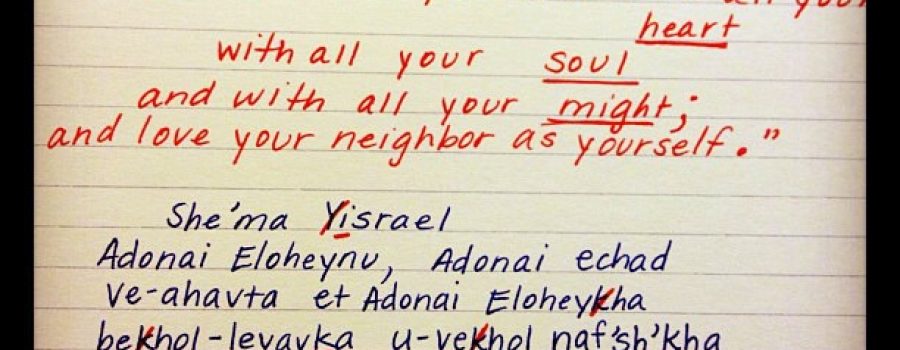 all your
heart
with all your soul
and with all your might;
and love your neighbor as yourself."
She'ma Yisrael
Adonai Eloheynu, Adonai echad
ve-ahavta et Adonai Eloheykha
bekhol-levavka u-vekhol naf'sh'kha